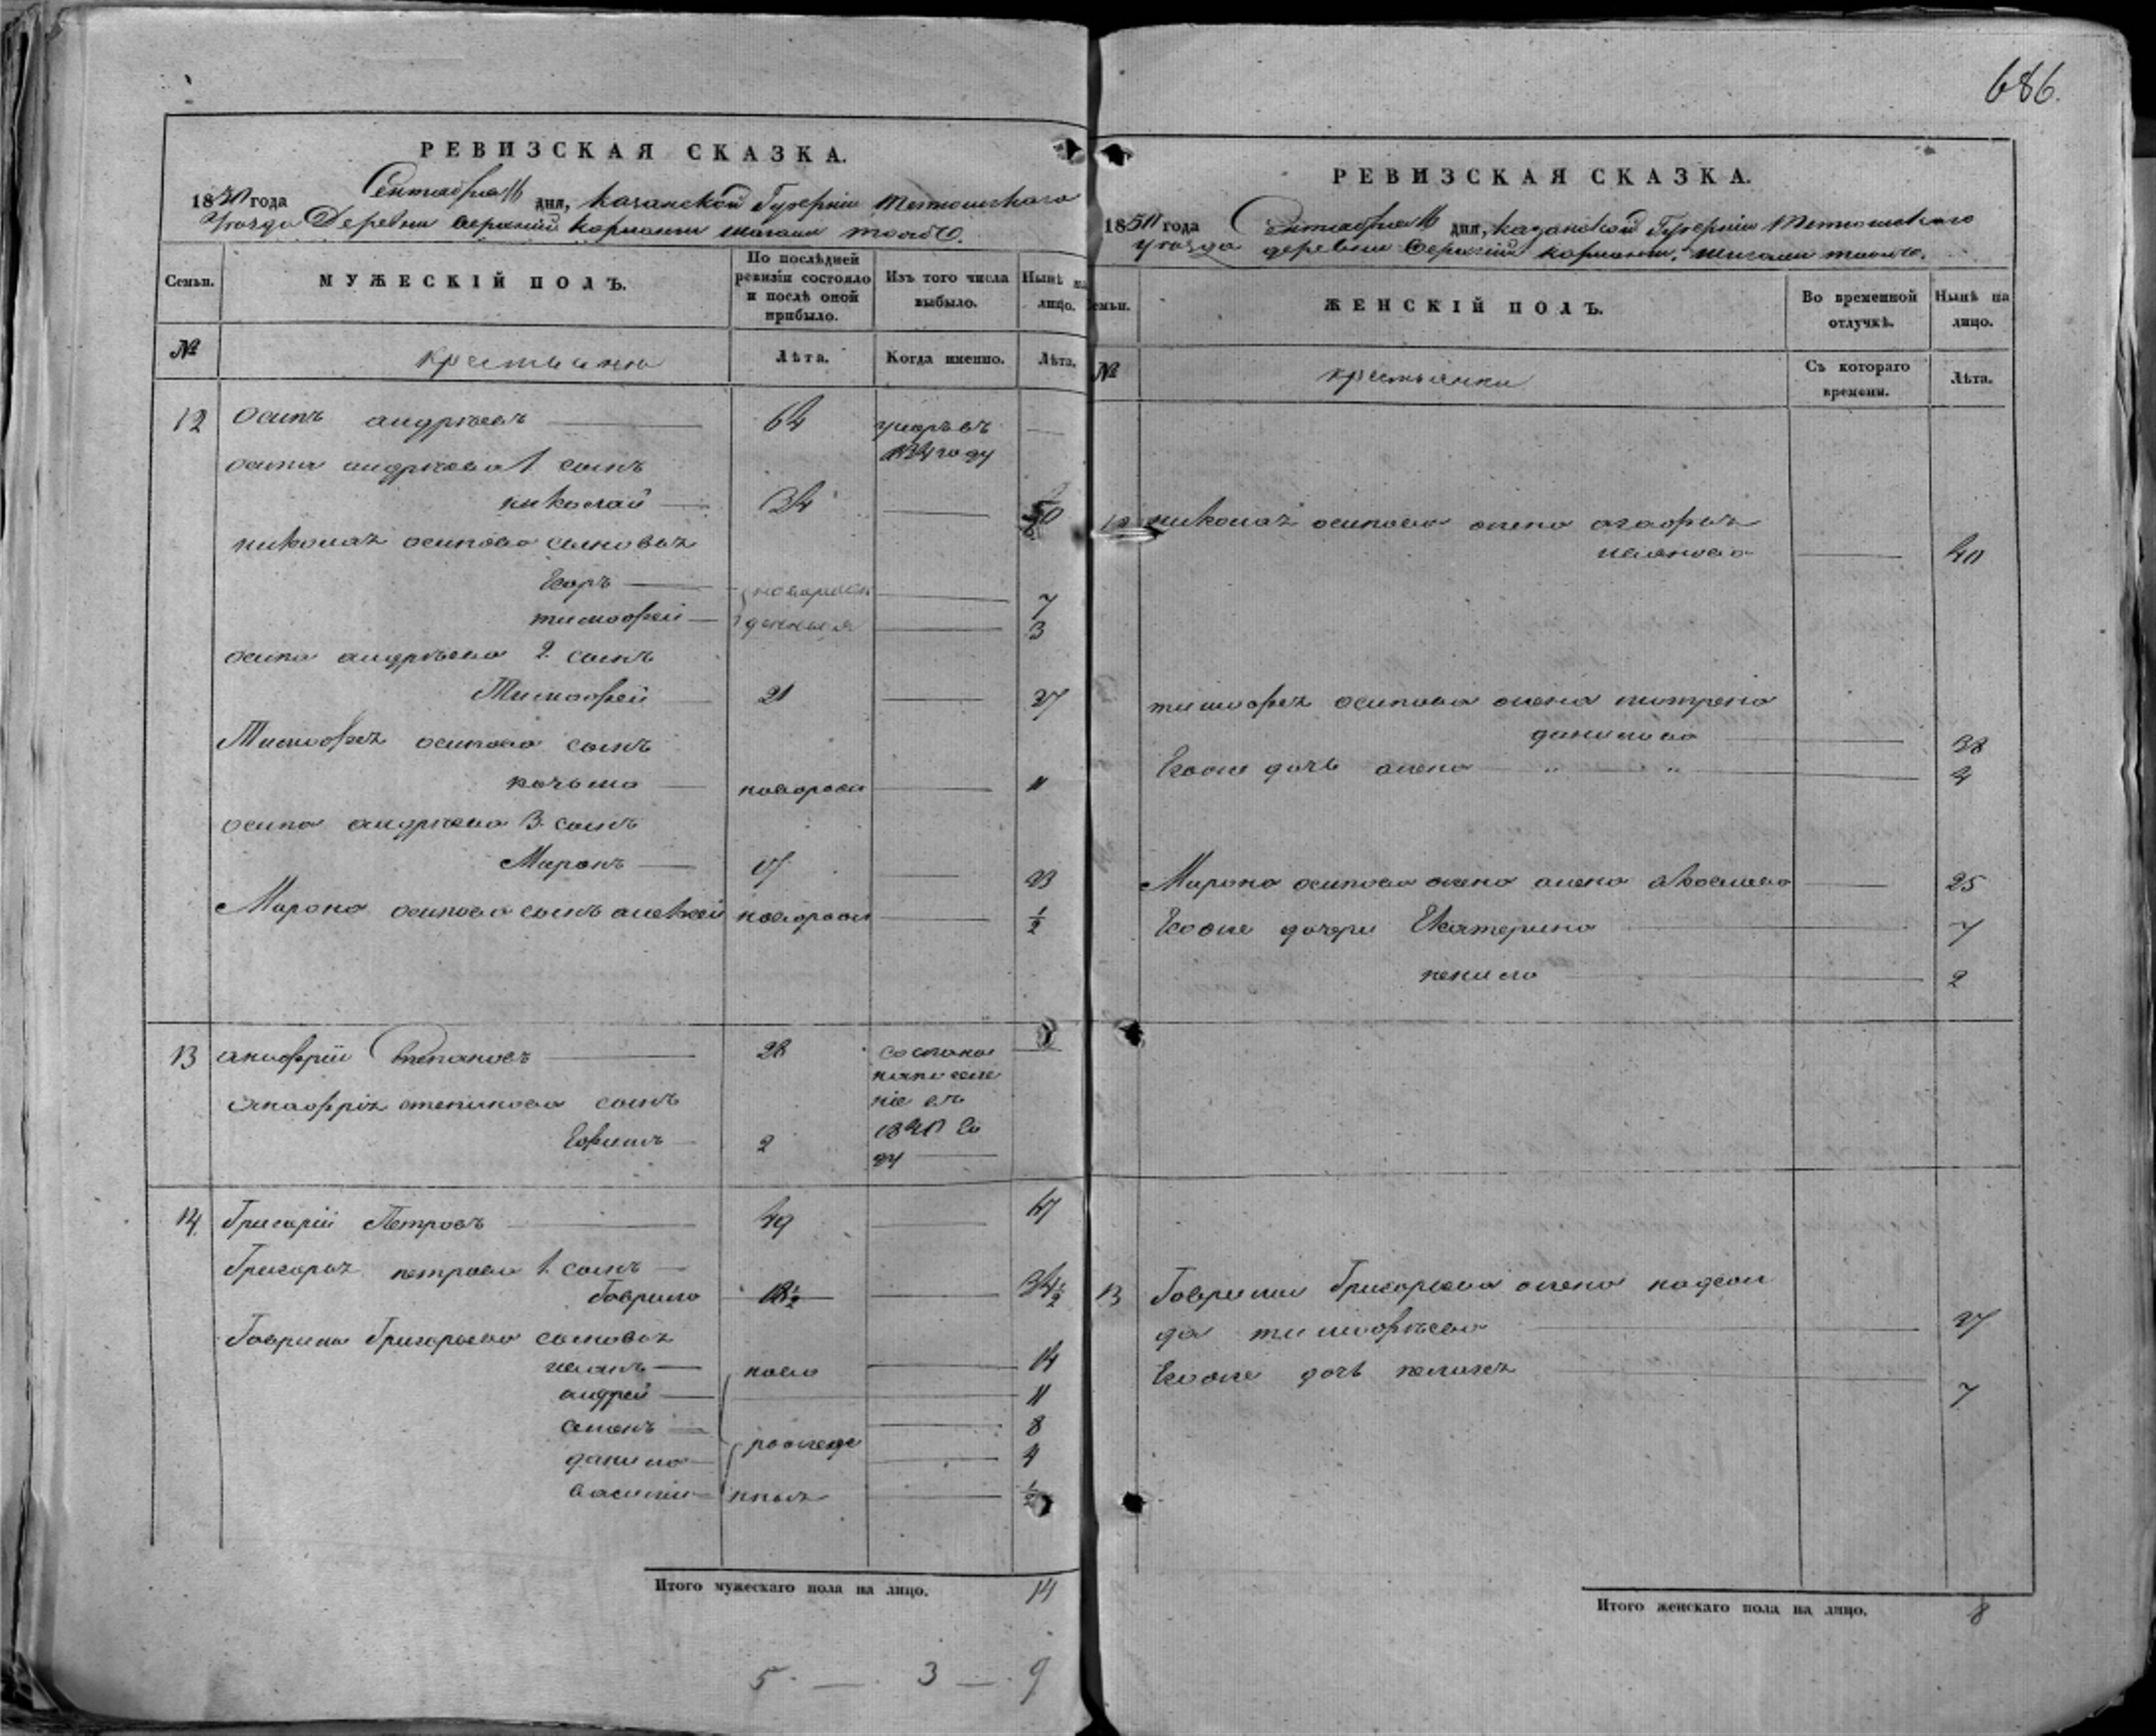 686.
РЕВИЗСКАЯ СКАЗКА.
1850 года Сентября 16 дня, казанской Губерніи тетюшскаго
Уезда Деревни
Семьи.
МУЖЕСКІЙ ПОЛЪ.
По послѣдней ревизіи состояло и послѣ оной прибыло.
Изъ того числа выбыло.
Нынѣ на лицо.
№
крестьяне
Лѣта.
Когда именно.
Лѣта.
12 осипъ андрѣевъ 64 умеръ въ
1834 году
осипа андрѣева 1. сынъ
николай 34 50
николая осипова сыновья
Егоръ новорож 7
тимофей денныя 3
осипа андрѣева 2 сынъ
Тимофей 21 37
Тимофея осипова сынъ
козьма новорож 11
осипа андрѣева 3. сынъ
Миронъ 17 33
Мирона осипова сынъ алексей новорож ½
13 анофрій Степановъ 28
анофрія степанова сынъ
Ефимъ 2 1840 го
ду
14. Григорій Петровъ 49
Григорья петрова 1. сынъ
Гаврило 18½ 34½
Гаврилы Григорьева сыновья
иванъ ново 14
андрей 11
семенъ 8
данило рожде 4
василій нныя ½
Итого мужескаго пола на лицо. 14
5 — 3 — 9
РЕВИЗСКАЯ СКАЗКА.
1850 года Сентября 16 дня, казанской Губерніи Тетюшскаго
уезда деревни
Семьи.
ЖЕНСКІЙ ПОЛЪ.
Во временной отлучкѣ.
Нынѣ на лицо.
№
крестьянки
Съ котораго времени.
Лѣта.
12 николая осипова жена агафья
иванова 40
тимофея осипова жена
данилова 38
Егоже дочь алена 4
Мирона осипова жена алена 25
Егоже дочери Екатерина 7
ненила 2
13 Гаврилы Григорьева жена надеж
да тимофѣева 37
Егоже дочь 7
Итого женскаго пола на лицо. 8